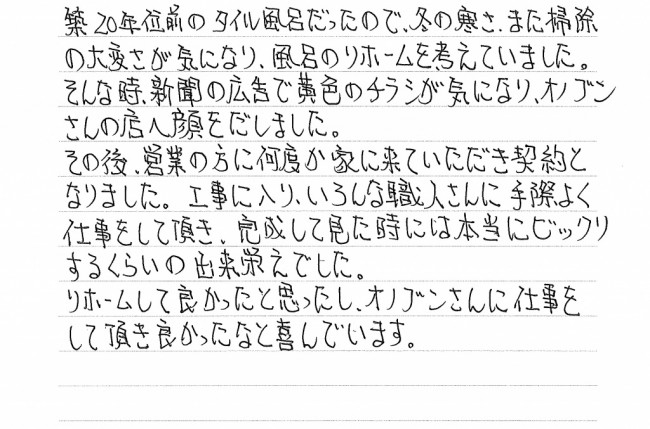 築20年位前のタイル風呂だったので、冬の寒さ、また掃除
の大変さが気になり、風呂のリホームを考えていました。
そんな時、新聞の広告で黄色のチラシが気になり、オノブン
さんの店へ顔をだしました。
その後、営業の方に何度か家に来ていただき契約と
なりました。工事に入り、いろんな職人さんに手際よく
仕事をして頂き、完成して見た時には本当にビックリ
するくらいの出来栄えでした。
リホームして良かったと思ったし、オノブンさんに仕事を
して頂き良かったなと喜んでいます。